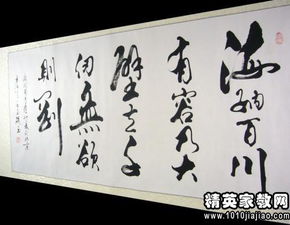 海納百川
有容乃大
壁立千
仞無欲
則剛
精英家教网
www.1010jiajiao.com